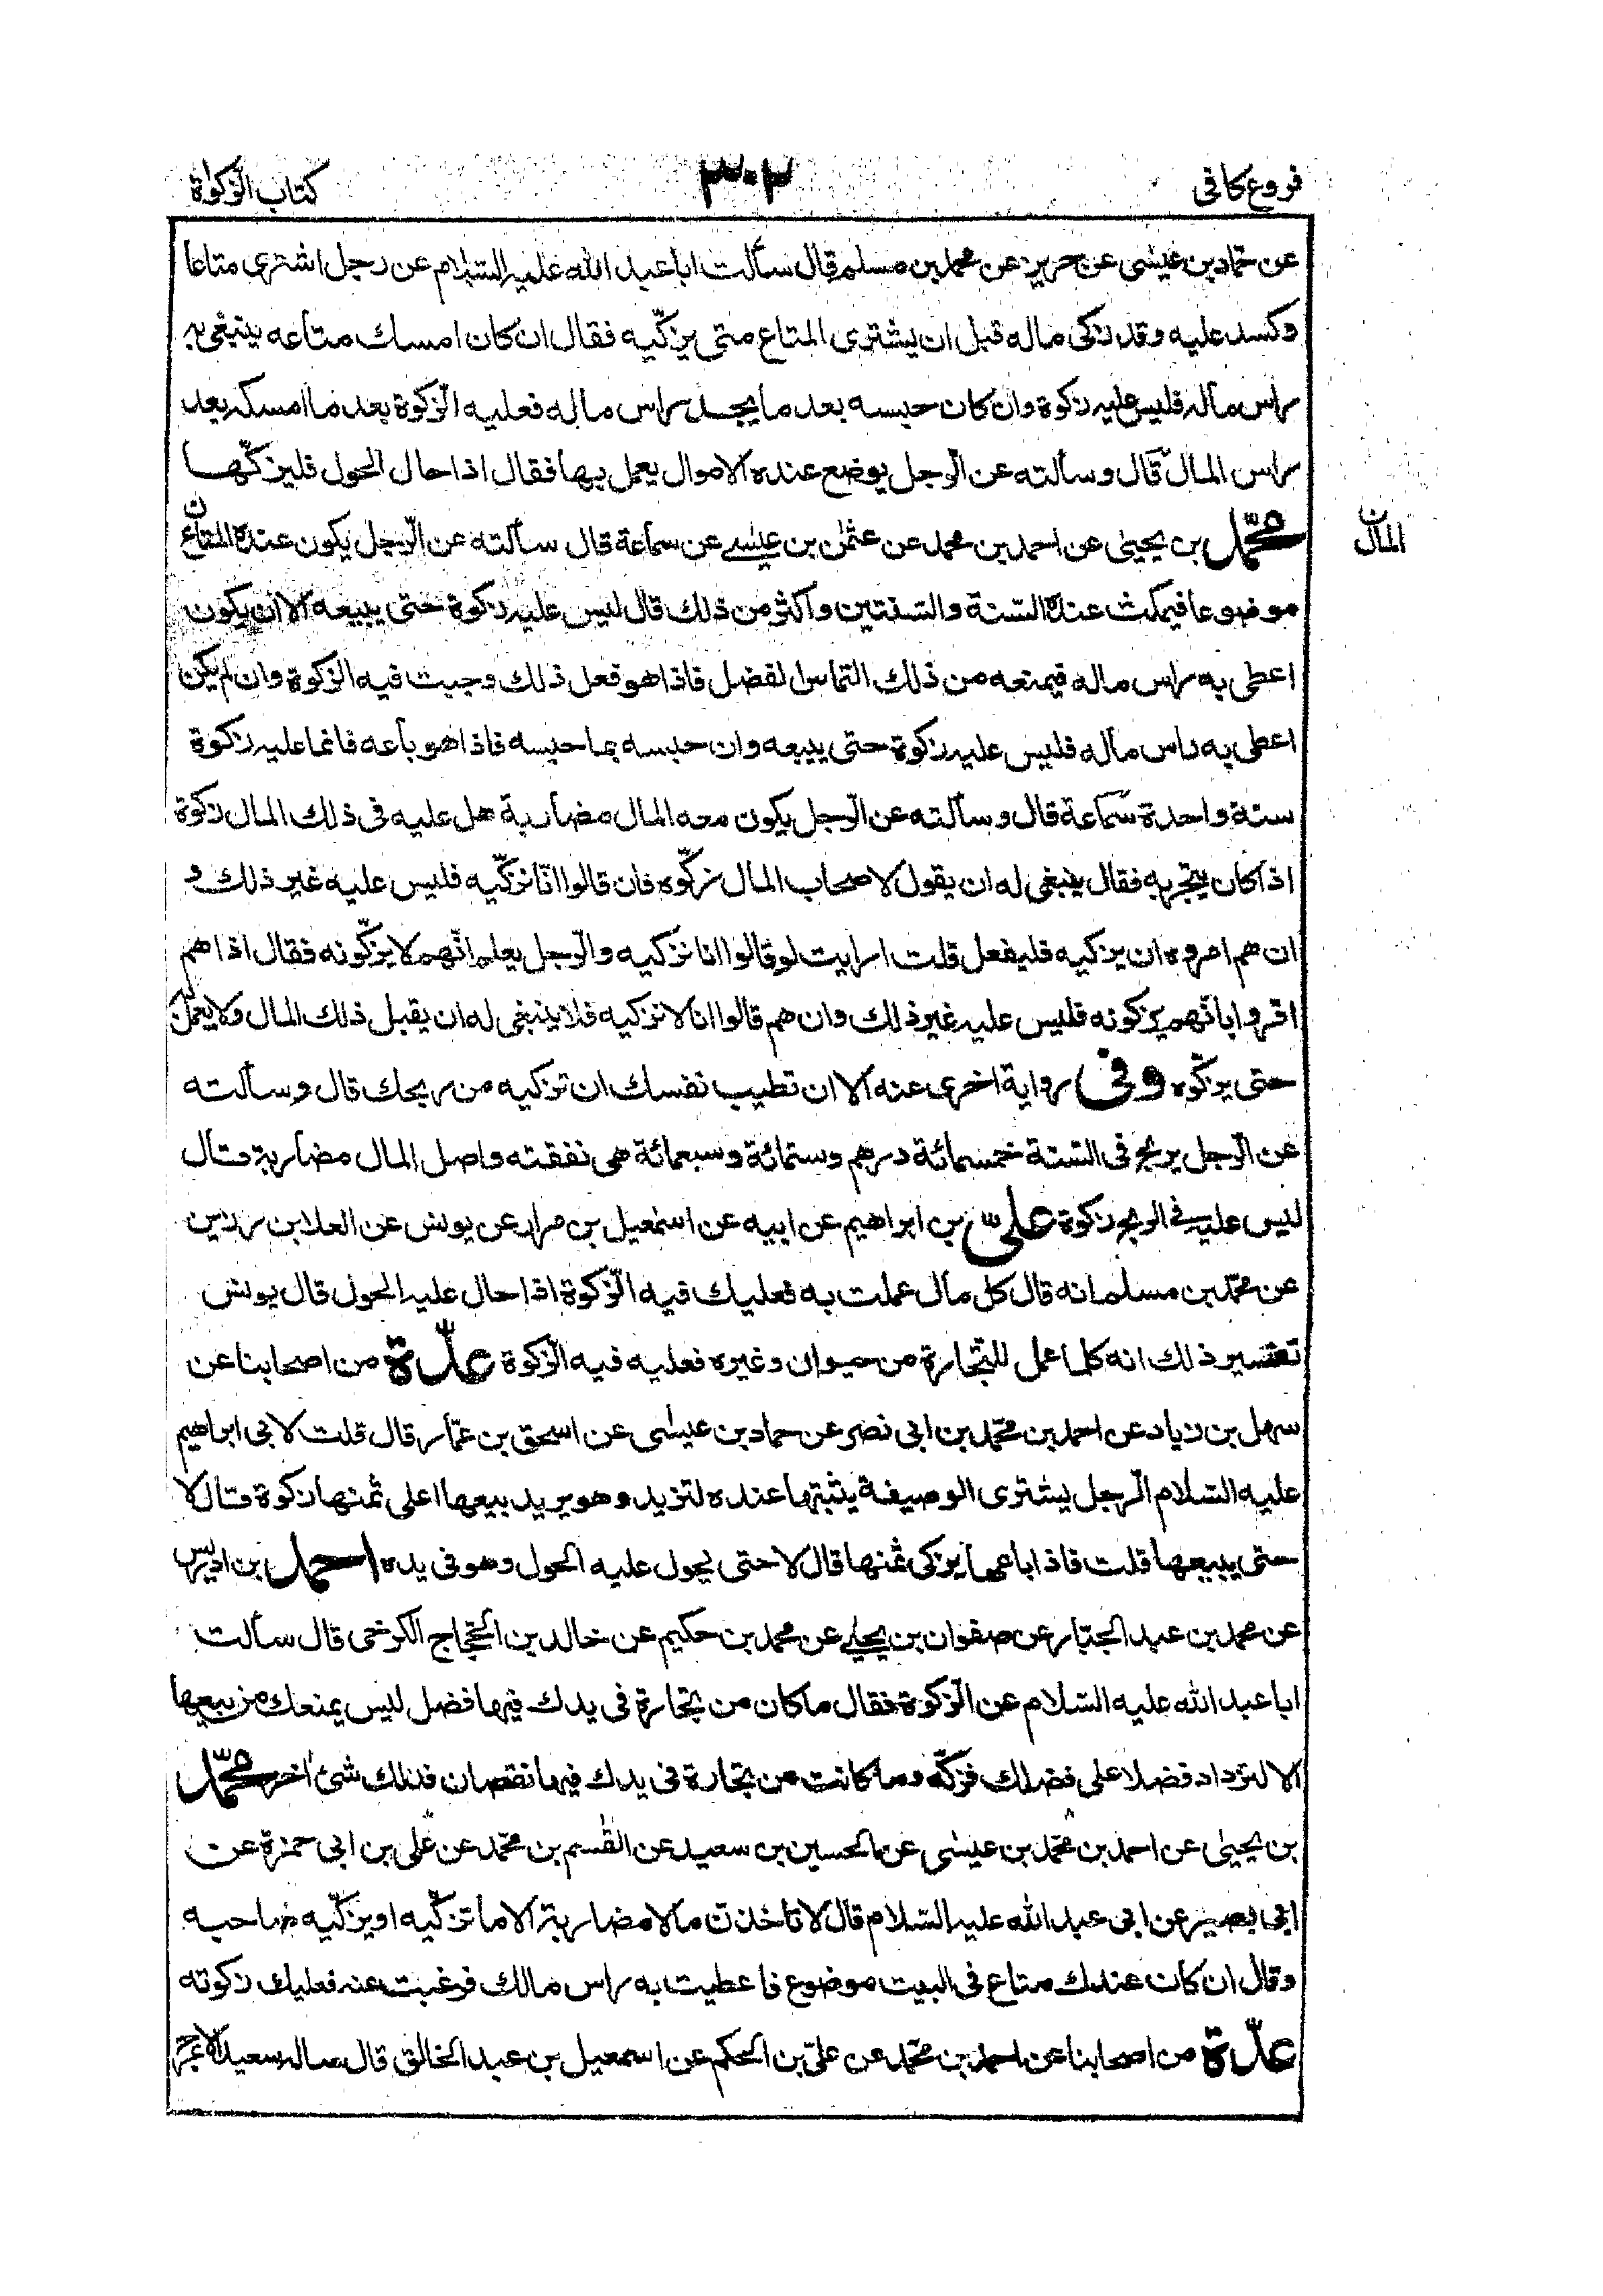 فروع كافى
٣٠٢
كتاب الزكوٰة
عن حماد بن عيسٰى عن حريز عن محمد بن مسلم قال سألت ابا عبد الله عليه السّلام عن رجل اشترى متاعا
وكسد عليه وقد زكى ماله قبل ان يشترى المتاع متى يزكّيه فقال ان كان امسك متاعه يبتغى به
راس ماله فليس عليه زكوة وان كان حبسه بعد ما يجد راس ماله فعليه الزّكوة بعد ما امسكه بعد
راس المال قال وسألته عن الرّجل يوضع عنده الاموال يعمل بها فقال اذا حال الحول فليزكّها
محمّد بن يحيىٰ عن احمد بن محمد عن عثمٰن بن عيسٰے عن سماعة قال سألته عن الرّجل يكون عنده المتاع
ن
المال
موضوعا فيمكث عنده السّنة والسّنتين واكثر من ذلك قال ليس عليه زكوة حتى يبيعه الا ان يكون
اعطى به راس ماله فيمنعه من ذلك التماس الفضل فاذا هو فعل ذلك وجبت فيه الزكوة وان لم يكن
اعطى به راس ماله فليس عليه زكوة حتى يبيعه وان حبسه بما حبسه فاذا هو باعه فانما عليه زكوة
سنة واحدة سماعة قال وسألته عن الرّجل يكون معه المال مضاربة هل عليه فى ذلك المال زكوة
اذا كان يتجر به فقال ينبغى له ان يقول لاصحاب المال زكّوه فان قالوا انّا نزكّيه فليس عليه غير ذلك و
ان هم امروه ان يزكيه فليفعل قلت ارايت لو قالوا انا نزكيه والرّجل يعلم انّهم لا يزكّونه فقال اذا هم
اقروا بانّهم يزكونه فليس عليه غير ذلك وان هم قالوا انا لا نزكيه فلا ينبغى له ان يقبل ذلك المال ولا يعمل به
حتى يزكّوه وفى رواية اخرى عنه الا ان تطيب نفسك ان تزكيه من ربحك قال وسألته
عن الرّجل يربح فى السّنة خمسمائة درهم وستمائة وسبعمائة هى نفقته واصل المال مضاربة قال
ليس عليه فى الربح زكوة علىّ بن ابراهيم عن ابيه عن اسمٰعيل بن مرار عن يونس عن العلا بن رزين
عن محمّد بن مسلم انه قال كل مال عملت به فعليك فيه الزّكوة اذا حال عليه الحول قال يونس
تفسير ذلك انه كلما عمل للتجارة من حيوان وغيره فعليه فيه الزّكوة عدّة من اصحابنا عن
سهل بن زياد عن احمد بن محمّد بن ابى نصر عن حماد بن عيسٰى عن اسحق بن عمّار قال قلت لابى ابراهيم
عليه السّلام الرّجل يشترى الوصيفة يثبتها عنده لتزيد وهو يريد بيعها اعلى ثمنها زكوة قال لا
حتى يبيعها قلت فاذا باعها يزكى ثمنها قال لا حتى يحول عليه الحول وهو فى يده احمد بن ادريس
عن محمد بن عبد الجبّار عن صفوان بن يحيٰے عن محمد بن حكيم عن خالد بن الحجّاج الكرخى قال سألت
ابا عبد الله عليه السّلام عن الزّكوة فقال ما كان من تجارة فى يدك فيها فضل ليس يمنعك من بيعها
الا لتزداد فضلا على فضلك فزكّه وما كانت من تجارة فى يدك فيها نقصان فذلك شئ اٰخر محمّد
بن يحيىٰ عن احمد بن محمّد بن عيسٰى عن الحسين بن سعيد عن القٰسم بن محمّد عن على بن ابى حمزة عن
ابى بصير عن ابى عبد الله عليه السّلام قال لا تاخذن مالا مضاربة الا ما تزكّيه او يزكّيه صاحبه
وقال ان كان عندك متاع فى البيت موضوع فاعطيت به راس مالك فرغبت عنه فعليك زكوته
عدّة من اصحابنا عن احمد بن محمّد عن علىّ بن الحكم عن اسمعيل بن عبد الخالق قال ساله سعيد الاعرج